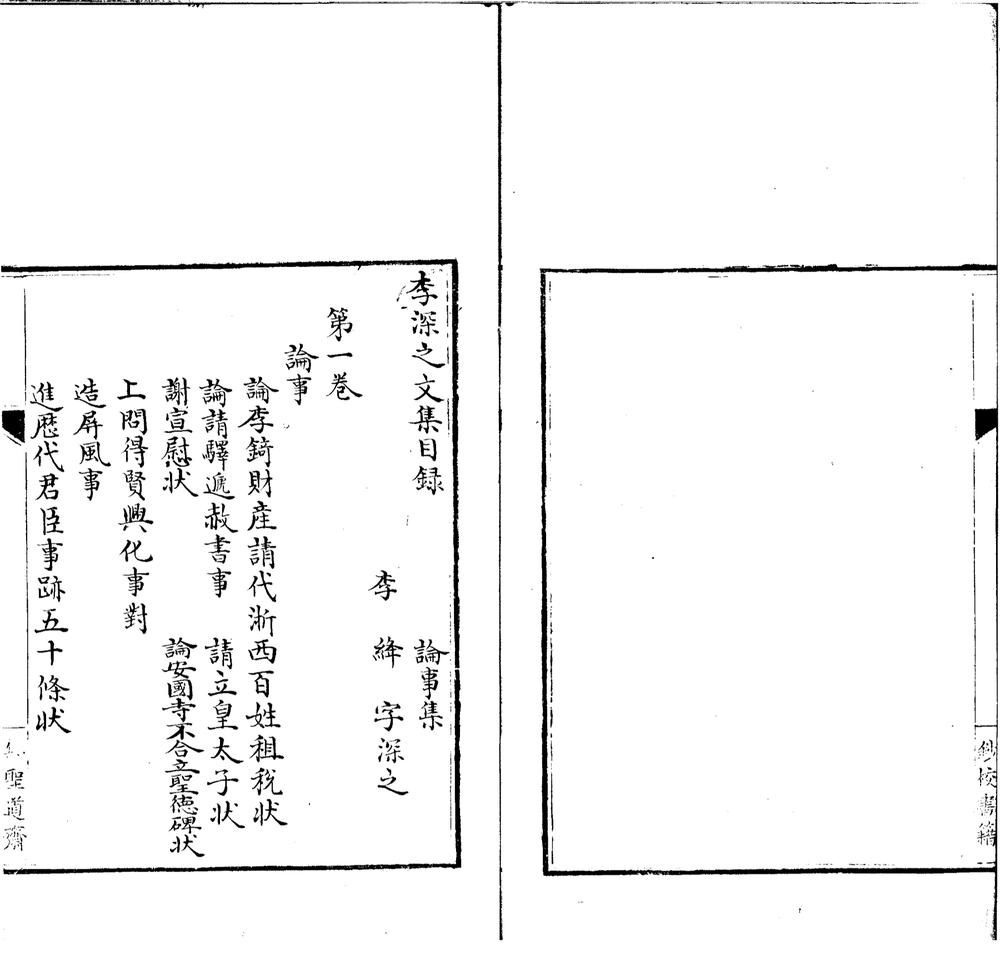 李深之文集目録　論事集
李　絳　字深之
第一卷
論事
論李錡財産請代浙西百姓租税状
論請驛遞赦書事　請立皇太子状
謝宣慰状　論安國寺不合立聖德碑状
上問得賢興化事對
造屏風事
進歴代君臣事跡五十條状
聖道齋
鈔校書籍